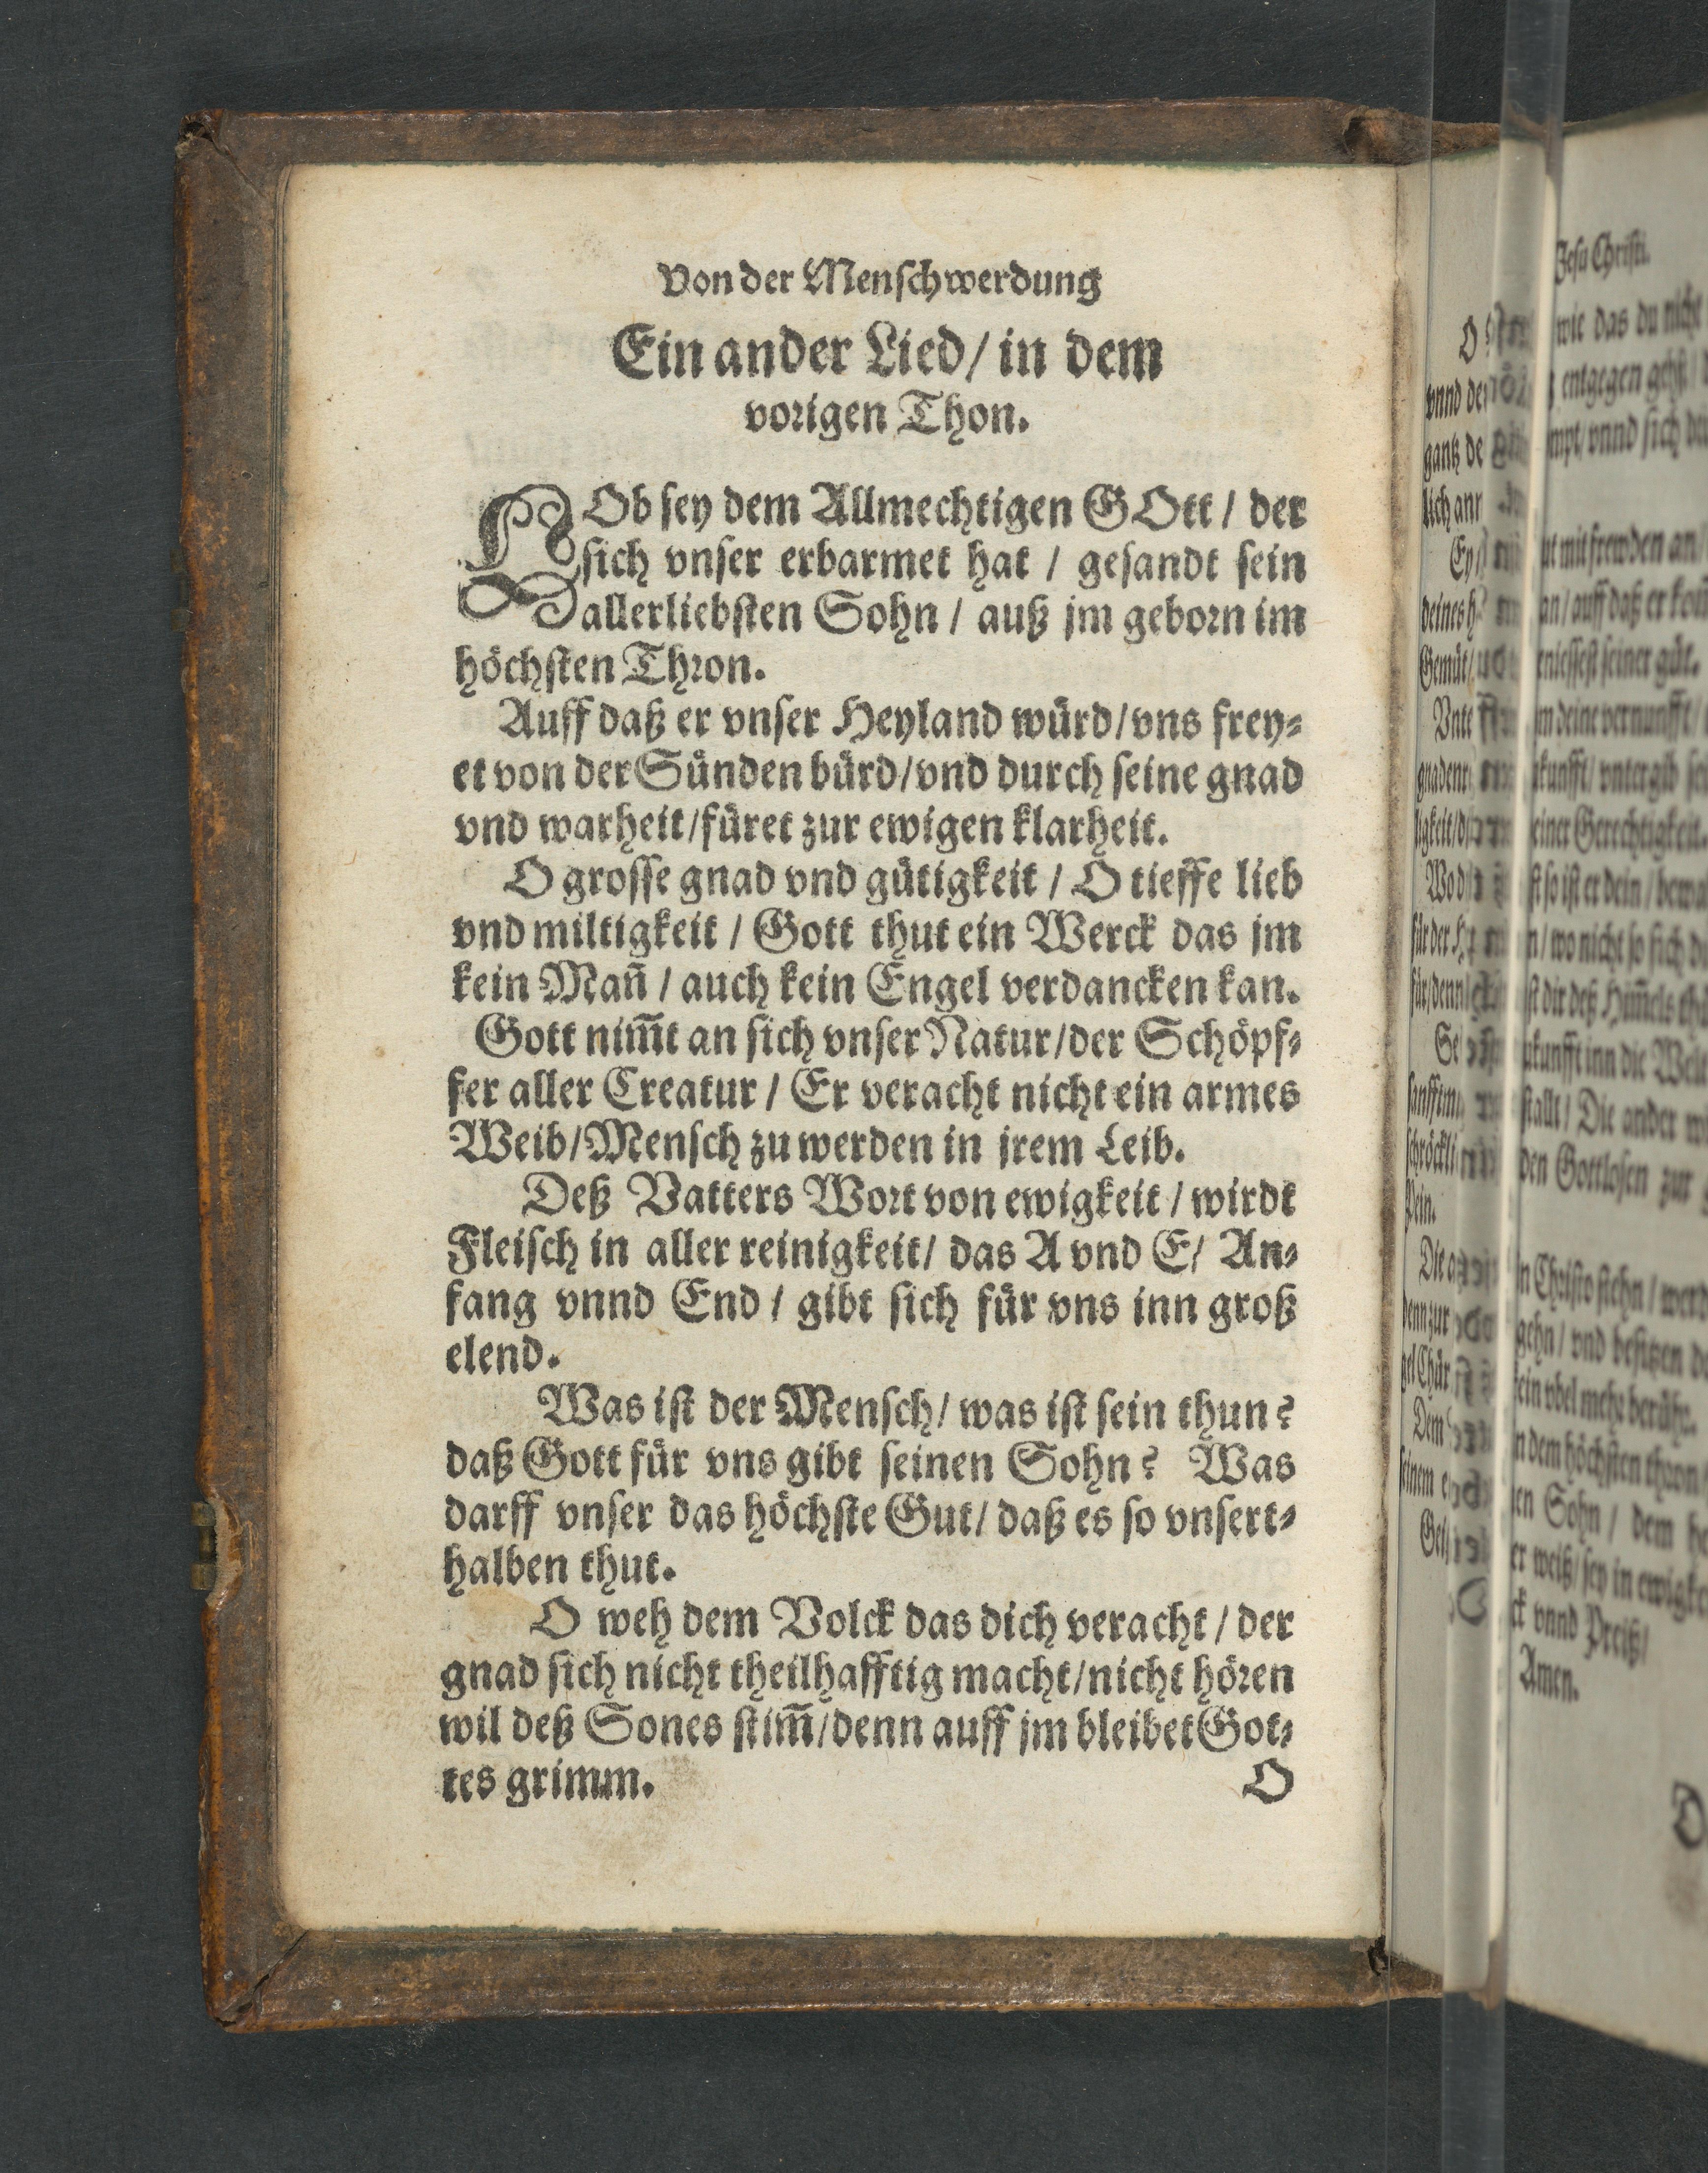 Von der Menschwerdung
Ein ander Lied/ in dem
vorigen Thon.
LOb sey dem Allmechtigen GOtt / der
sich vnser erbarmet hat / gesandt sein
allerliebsten Sohn / auß jm geborn im
höchsten Thron.
Auff daß er vnser Heyland würd/vns frey⸗
et von der Sünden bürd/vnd durch seine gnad
vnd warheit/füret zur ewigen klarheit.
O grosse gnad vnd gütigkeit / O tieffe lieb
vnd miltigkeit / Gott thut ein Werck das jm
kein Mañ / auch kein Engel verdancken kan.
Gott nim̃t an sich vnser Natur/der Schöpf⸗
fer aller Creatur / Er veracht nicht ein armes
Weib/Mensch zu werden in jrem Leib.
Deß Vatters Wort von ewigkeit / wirdt
Fleisch in aller reinigkeit/ das A vnd E/ An⸗
fang vnnd End / gibt sich für vns inn groß
elend.
Was ist der Mensch/ was ist sein thun?
daß Gott für vns gibt seinen Sohn? Was
darff vnser das höchste Gut/ daß es so vnsert⸗
halben thut.
O weh dem Volck das dich veracht / der
gnad sich nicht theilhafftig macht/nicht hören
wil deß Sones stim̃/denn auff jm bleibet Got⸗
tes grimm.
O
Jesu Christi.
wie das du nicht
entgegen gehst
vnnd sich
mit frewden an
an/ auff daß er
seiner güt.
deine vernunfft
vntergib
einer Gerechtigkeit.
so ist er dein
wo nicht so sich
dir deß Him̃els
inn die Welt
Die ander
den Gottlosen zur
Christo stehn
vnd besitzen
vbel mehr berühr.
dem höchsten thron
Sohn / dem
weiß/ sey in
vnnd Preiß/
Amen.